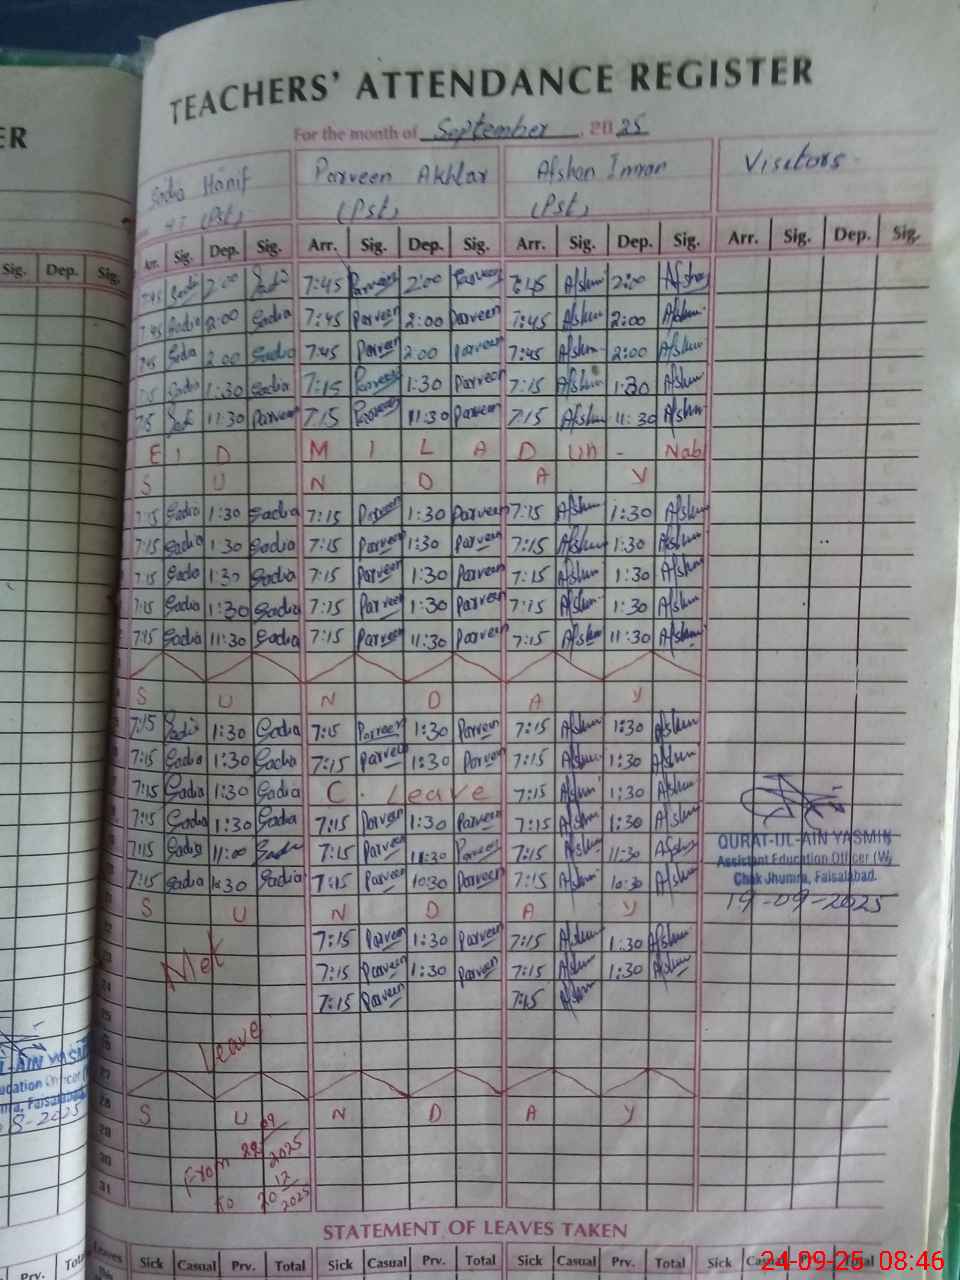 TEACHERS' ATTENDANCE REGISTER
ER
For the month of September, 2025
Sadia Hanif Parveen Akhtar Afshan Imran Visitors
(Pst) (Pst) (Pst)
Sig. Dep. Sig. Arr. Sig. Dep. Sig. Arr. Sig. Dep. Sig. Arr. Sig. Dep. Sig. Arr. Sig. Dep. Sig.
7:45 Sadia 2:00 Sadia 7:45 Parveen 2:00 Parveen 7:45 Afshan 2:00 Afshan
7:45 Sadia 2:00 Sadia 7:45 Parveen 2:00 Parveen 7:45 Afshan 2:00 Afshan
7:45 Sadia 2:00 Sadia 7:45 Parveen 2:00 Parveen 7:45 Afshan 2:00 Afshan
7:15 Sadia 1:30 Sadia 7:15 Parveen 1:30 Parveen 7:15 Afshan 1:30 Afshan
7:15 11:30 Parveen 7:15 Parveen 11:30 Parveen 7:15 Afshan 11:30 Afshan
E I D M I L A D Un - Nabi
S U N D A Y
7:15 Sadia 1:30 Sadia 7:15 Parveen 1:30 Parveen 7:15 Afshan 1:30 Afshan
7:15 Sadia 1:30 Sadia 7:15 Parveen 1:30 Parveen 7:15 Afshan 1:30 Afshan
7:15 Sadia 1:30 Sadia 7:15 Parveen 1:30 Parveen 7:15 Afshan 1:30 Afshan
7:15 Sadia 1:30 Sadia 7:15 Parveen 1:30 Parveen 7:15 Afshan 1:30 Afshan
7:15 Sadia 11:30 Sadia 7:15 Parveen 11:30 Parveen 7:15 Afshan 11:30 Afshan
S U N D A Y
7:15 Sadia 1:30 Sadia 7:15 Parveen 1:30 Parveen 7:15 Afshan 1:30 Afshan
7:15 Sadia 1:30 Sadia 7:15 Parveen 1:30 Parveen 7:15 Afshan 1:30 Afshan
7:15 Sadia 1:30 Sadia C. Leave 7:15 Afshan 1:30 Afshan
7:15 Sadia 1:30 Sadia 7:15 Parveen 1:30 Parveen 7:15 Afshan 1:30 Afshan
7:15 Sadia 11:00 Sadia 7:15 Parveen 11:30 Parveen 7:15 Afshan 11:30 Afshan
7:15 Sadia 10:30 Sadia 7:15 Parveen 10:30 Parveen 7:15 Afshan 10:30 Afshan
QURAT-UL-AIN YASMIN
Assistant Education Officer (W)
Chak Jhumra, Faisalabad.
19-09-2025
S U N D A Y
7:15 Parveen 1:30 Parveen 7:15 Afshan 1:30 Afshan
23 7:15 Parveen 1:30 Parveen 7:15 Afshan 1:30 Afshan
24 7:15 Parveen 7:15 Afshan
25
26
27
28 S U N D A Y
29
30
31
Leave
From 22 09 2025
To 20 12 2025
STATEMENT OF LEAVES TAKEN
Leaves Sick Casual Prv. Total Sick Casual Prv. Total Sick Casual Prv. Total Sick Casual Prv. Total
Prv. Total
24-09-25 08:46